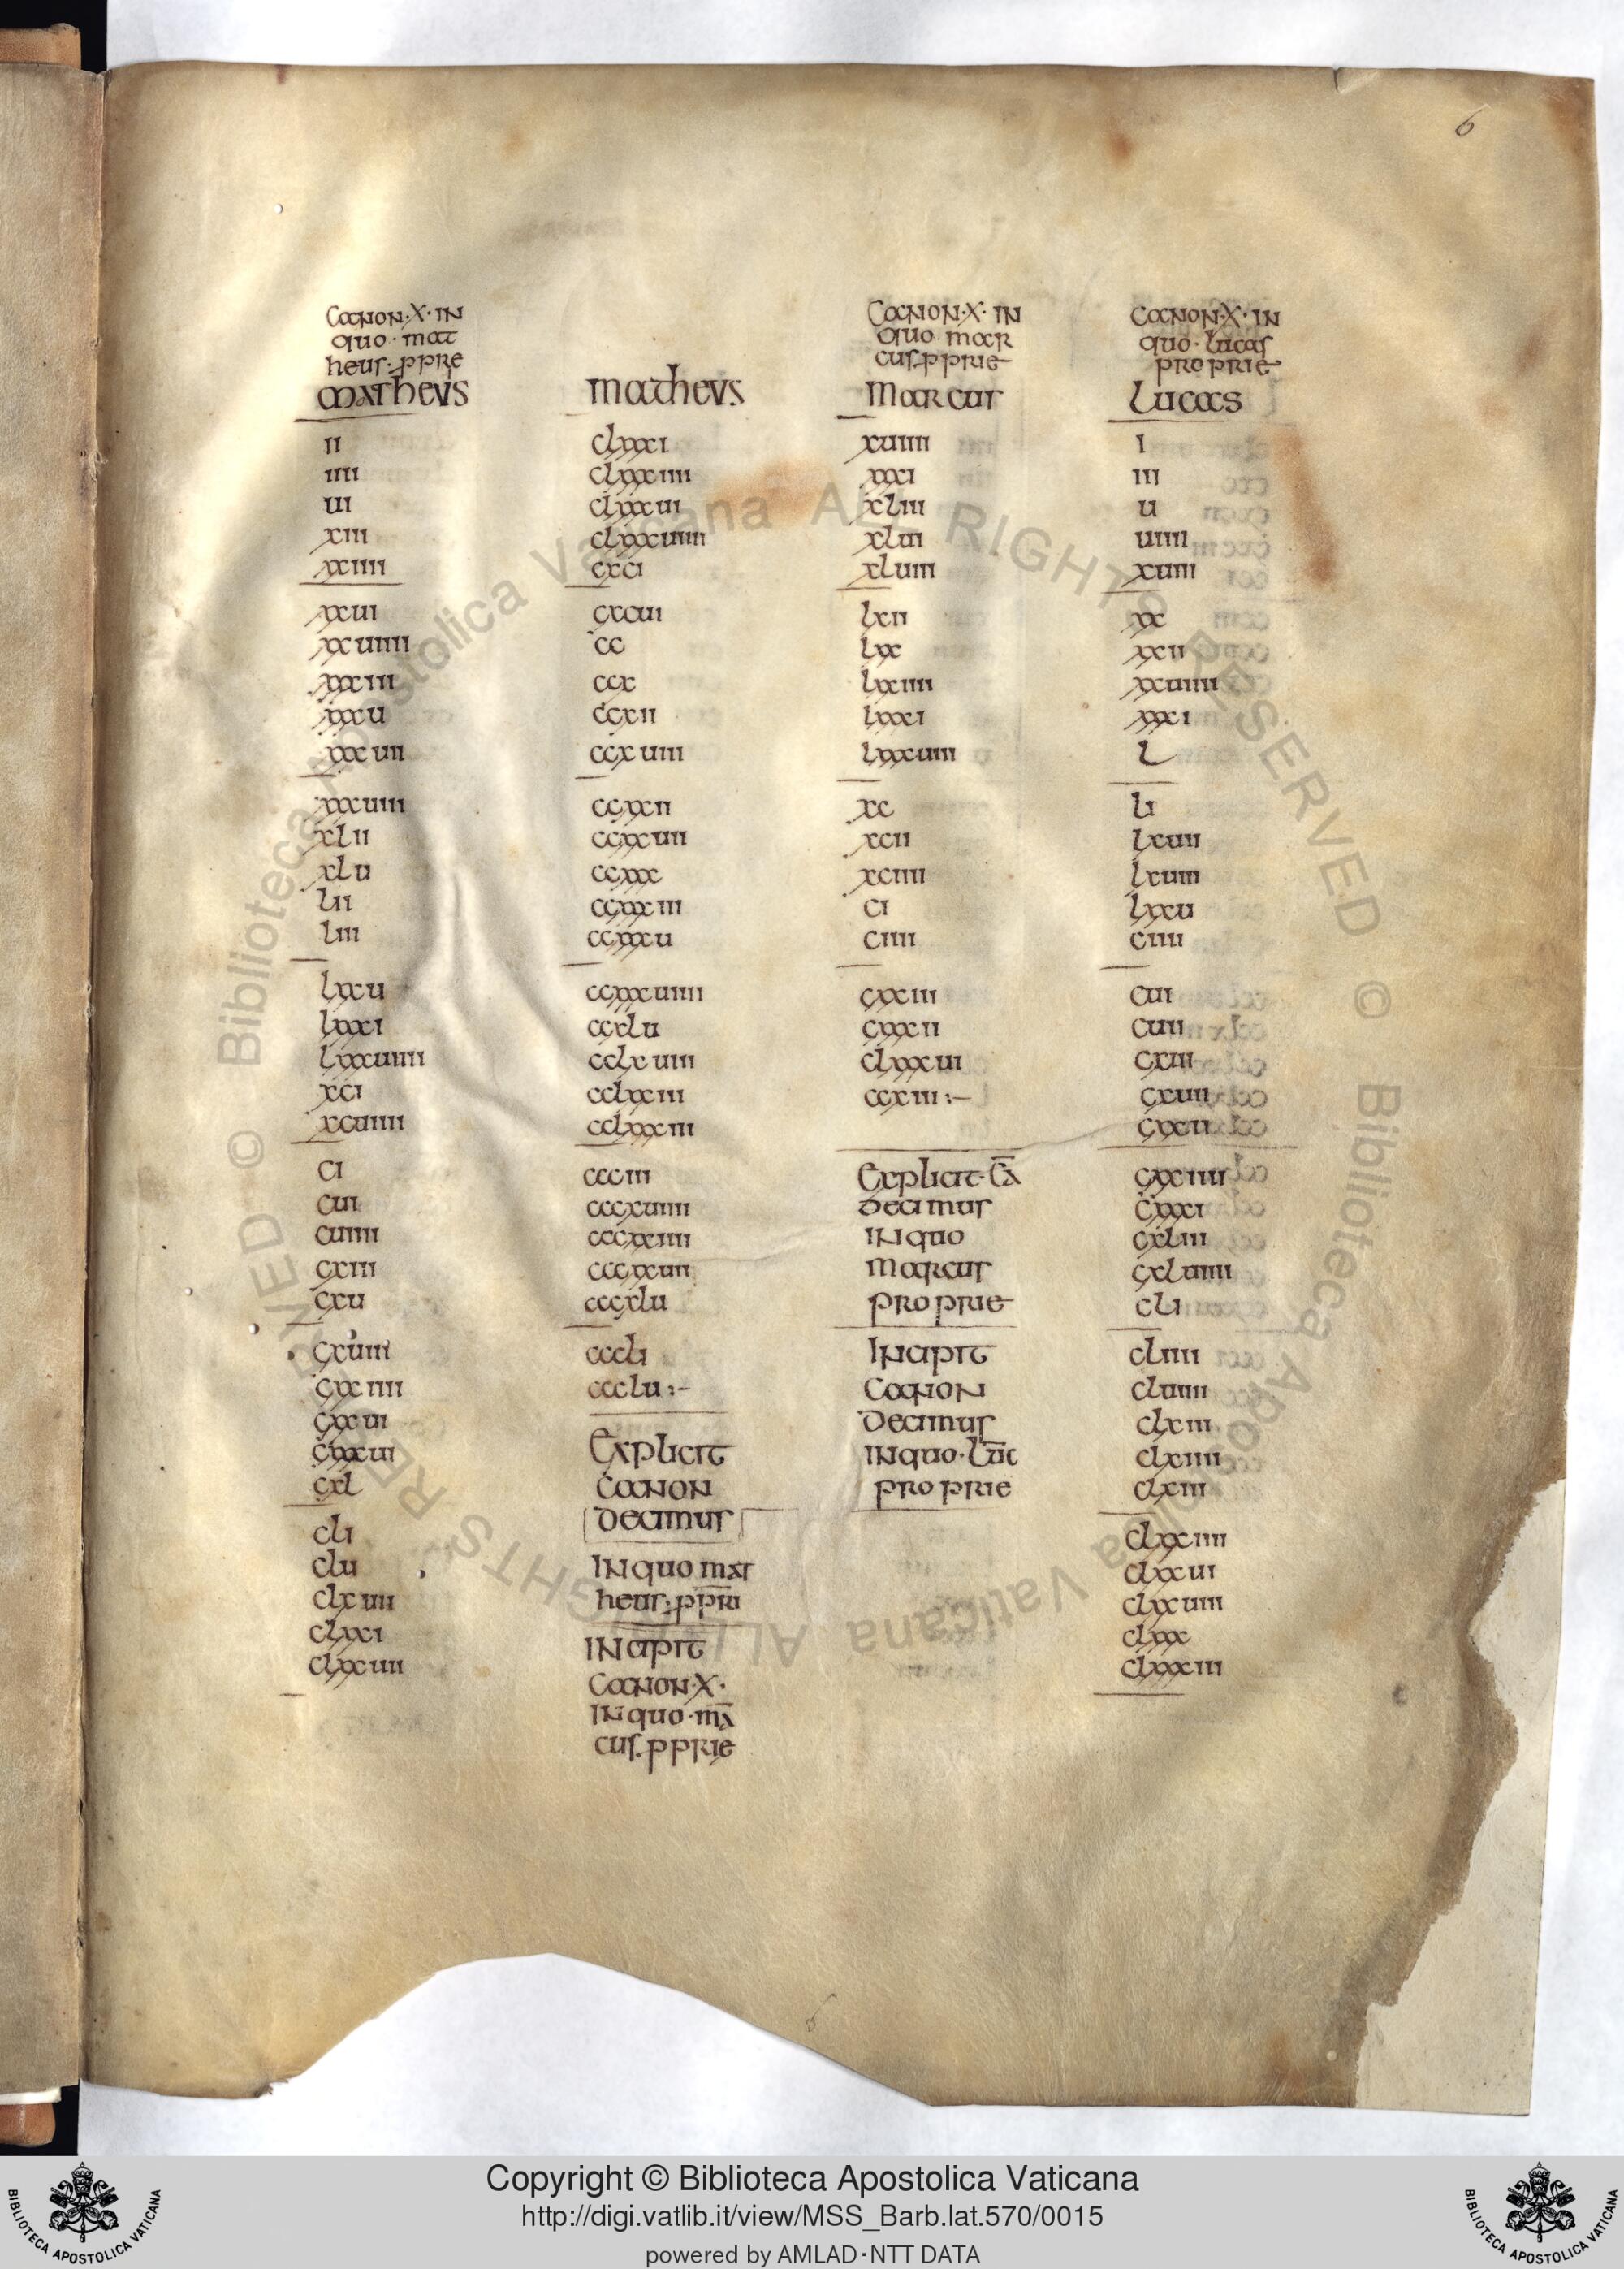 6
Canon·X·IN
quo·mat
heus·ppre
Matheus
ii
iiii
ui
xiii
xxiiii
xxui
xxuiiii
xxxiii
xxxu
xxxuii
xxxuiii
xlii
xlu
lii
liii
lxxu
lxxxi
lxxxuiiii
xci
xcuiiii
ci
cui
cuiiii
cxiii
cxu
cxuiii
cxxiiii
cxxui
cxxxui
cxl
cli
clu
clxuii
clxxi
clxxuii
matheus
clxxxi
clxxxiiii
clxxxui
clxxxuiiii
cxci
cxcui
cc
ccx
ccxii
ccxuiii
ccxxii
ccxxuii
ccxxx
ccxxxiii
ccxxxu
ccxxxuiiii
ccxlu
cclxuiii
cclxxiii
cclxxxiii
ccciii
cccxuiiii
cccxxiiii
cccxxuii
cccxlu
cccli
ccclu:-
Explicit
Canon
Decimus
INquo mat
heus·ppri
INcipit
Canon·X·
INquo·ma
cus·pprie
Canon·X·IN
quo mar
cus·pprie
Marcus
xuiiii
xxxi
xliii
xliii
xluiii
lxii
lxx
lxxiiii
lxxxi
lxxxuiii
xc
xcii
xciiii
ci
ciiii
cxxiii
cxxxii
clxxxui
ccxiii:-
Explicit·Ca
Decimus
INquo
Marcus
proprie
INcipit
Canon
Decimus
INquo·Luc
proprie
Canon·X·IN
quo·Lucas
proprie
Lucas
i
iii
u
uiiii
xuiii
xx
xxii
xxuiiii
xxxi
L
li
lxuii
lxuiii
lxxu
ciiii
cui
cuii
cxiii
cxuii
cxxii
cxxiiii
cxxxi
cxliii
cxluiiii
cli
cliiii
cluiiii
clxiii
clxiiii
clxiii
clxxiiii
clxxui
clxxuiii
clxxx
clxxxiii
© Biblioteca Apostolica Vaticana ALL RIGHTS RESERVED © Biblioteca Apostolica Vaticana ALL RIGHTS RESERVED
BIBLIOTECA APOSTOLICA VATICANA
Copyright © Biblioteca Apostolica Vaticana
http://digi.vatlib.it/view/MSS_Barb.lat.570/0015
powered by AMLAD·NTT DATA
BIBLIOTECA APOSTOLICA VATICANA